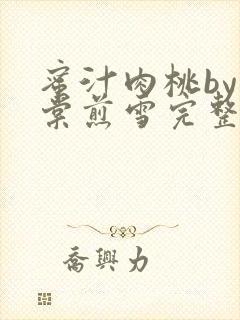 蜜汁肉桃by
棠煎雪完整
喬興力